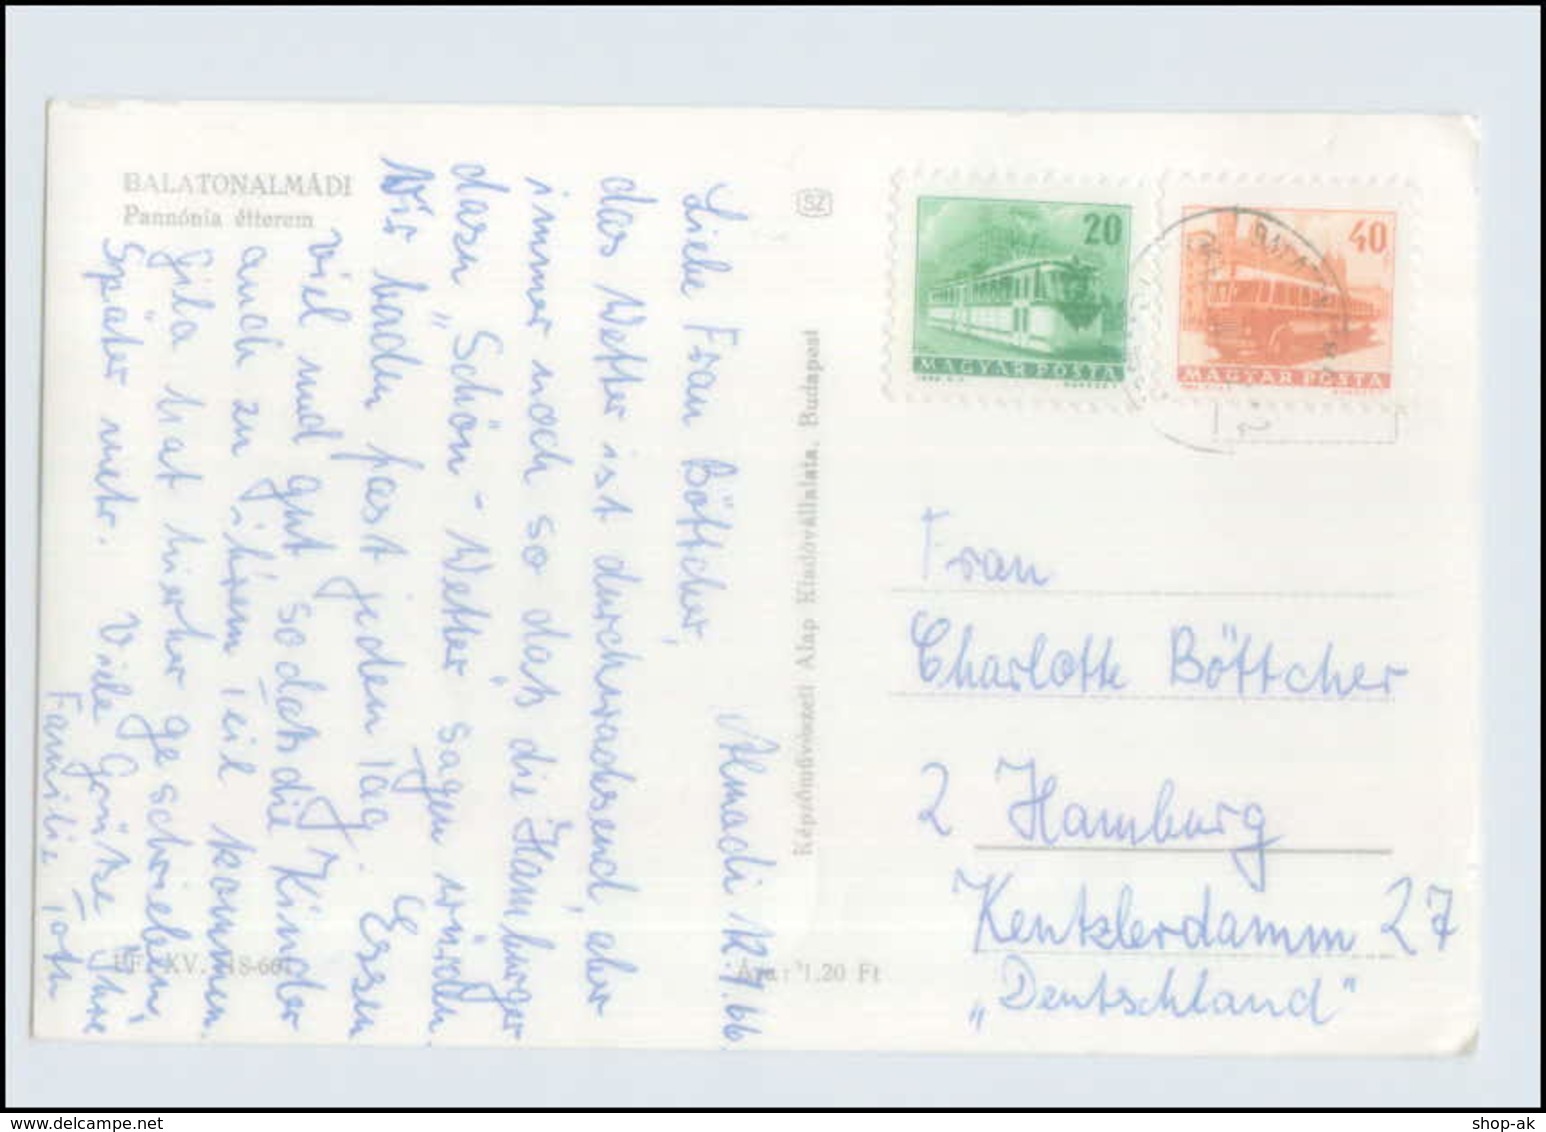 BALATONALMÁDI
Pannónia étterem
SZ
20
MAGYAR POSTA
40
MAGYAR POSTA
Almadi 12.7.66
Liebe Frau Böttcher,
das Wetter ist durchwachsend, aber
immer noch so daß die Hamburger
dazu "Schön-Wetter" sagen würden
Wir baden fast jeden Tag. Essen
viel und gut sodaß die Kinder
auch zu ihrem Teil kommen.
hat hierher geschrieben,
Später mehr. Viele Grüße Ihre
Familie Toth
Képzőművészeti Alap Kiadóvállalata, Budapest
Ára: 1.20 Ft
Frau
Charlotte Böttcher
2 Hamburg
Kentzlerdamm 27
„Deutschland"
shop-ak